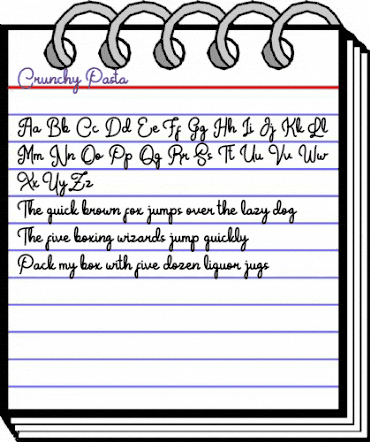 Crunchy Pasta
Aa Bb Cc Dd Ee Ff Gg Hh Ii Jj Kk Ll
Mm Nn Oo Pp Qq Rr Ss Tt Uu Vv Ww
Xx Yy Zz
The quick brown fox jumps over the lazy dog
The five boxing wizards jump quickly
Pack my box with five dozen liquor jugs